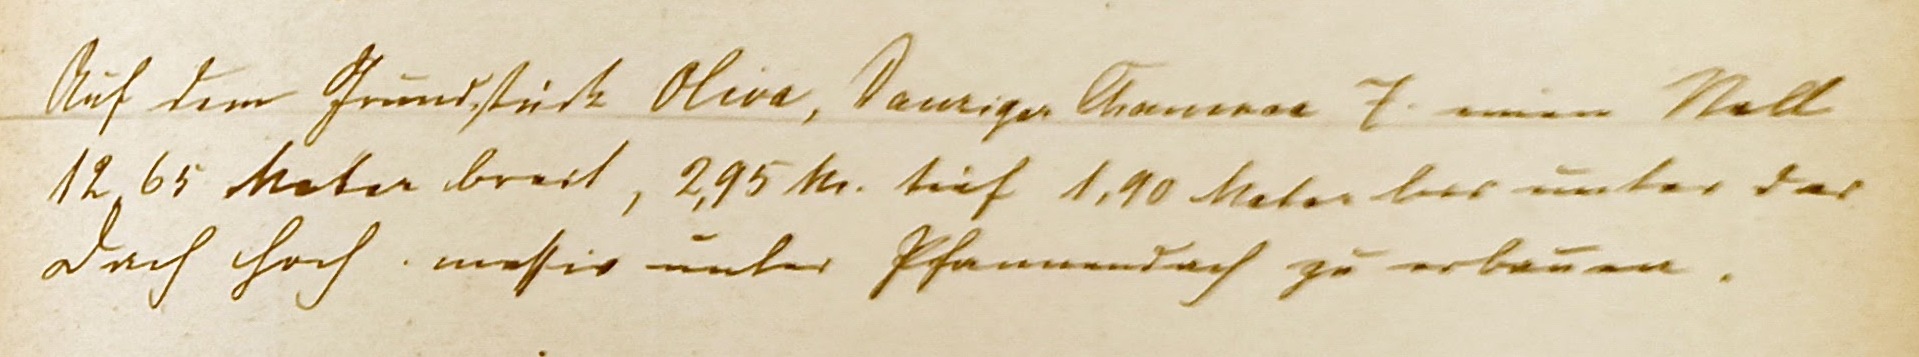 Auf dem Grundstück Oliva, Danziger Chaussee 7. einen Stall
12,65 Meter breit, 2,95 M. tief 1,90 Meter bis unter das
Dach hoch. massiv unter Pfannendach zu erbauen.